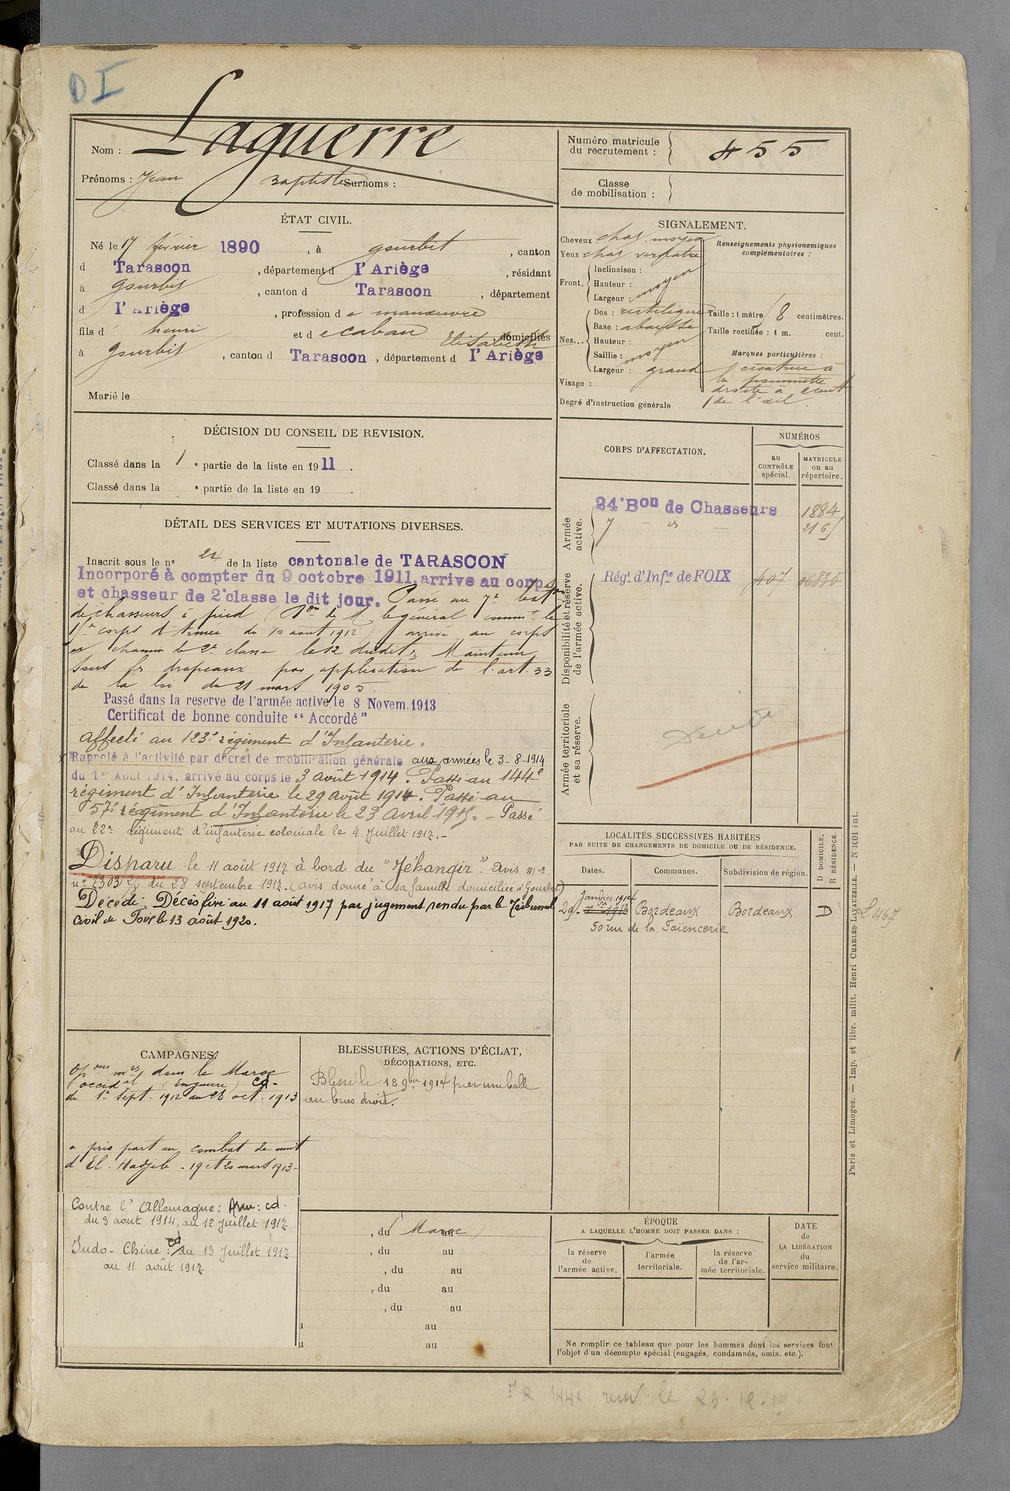 DI
Nom : Laguerre
Prénoms : Jean Baptiste Surnoms :
Numéro matricule du recrutement : 455
Classe de mobilisation :
ÉTAT CIVIL.
Né le 17 février 1890, à Gourbit, canton
d Tarascon, département d l'Ariège, résidant
à Gourbit, canton d Tarascon, département
d l'Ariège, profession de manœuvre
fils d' henri et de Cabau Elisabeth domiciliés
à Gourbit, canton d Tarascon, département d l'Ariège
Marié le
SIGNALEMENT.
Cheveux chat. moyen
Yeux chat verdatre
Front. Inclinaison :
Hauteur : moyen
Largeur :
Nez... Dos : rectiligne
Base : abaissée
Hauteur :
Saillie : moyen
Largeur : grand
Visage :
Degré d'instruction générale
Renseignements physionomiques complémentaires :
Taille : 1 mètre 8 centimètres.
Taille rectifiée : 1 m. cent.
Marques particulières :
cicatrice à
la pommette
droite à
de l'œil
DÉCISION DU CONSEIL DE REVISION.
Classé dans la 1 e partie de la liste en 1911.
Classé dans la e partie de la liste en 19 .
DÉTAIL DES SERVICES ET MUTATIONS DIVERSES.
Inscrit sous le n° 24 de la liste cantonale de TARASCON
Incorporé à compter du 9 octobre 1911, arrive au corps
et chasseur de 2e classe le dit jour. Passé au 7e bat on
de chasseurs à pied ( on de M. le général comm t le
corps d'Armée du 10 aout 1912) arrivé au corps
chasseur de 2e classe le 12 dudit. Maintenu
sous les drapeaux par application de l'art. 33
de la loi du 21 mars 1905.
Passé dans la reserve de l'armée active le 8 Novem. 1913
Certificat de bonne conduite "Accordé"
Affecté au 123e régiment d'Infanterie.
Rappelé à l'activité par décret de mobilisation générale aux armées le 3-8-1914
du 1er Août 1914, arrivé au corps le 3 août 1914. Passé au 144e
régiment d'Infanterie le 29 août 1914. Passé au
57e régiment d'Infanterie le 23 avril 1915. - Passé
au 22e régiment d'infanterie coloniale le 4 Juillet 1917.-
Disparu le 11 août 1917 à bord du "Jéhangir". Avis
du 28 septembre 1917. (avis donné à sa famille domiciliée à Gourbit)
Décédé: Décès fixé au 11 août 1917 par jugement rendu par le Tribunal
civil de Foix le 13 août 1920.
CORPS D'AFFECTATION.
NUMÉROS
au CONTRÔLE spécial.
MATRICULE ou au répertoire.
Armée active.
24e Bon de Chasseurs 1884
7 d° 216
Disponibilité et réserve de l'armée active.
Régt d'Infie de FOIX 407 06836
Armée territoriale et sa réserve.
LOCALITÉS SUCCESSIVES HABITÉES
PAR SUITE DE CHANGEMENTS DE DOMICILE OU DE RÉSIDENCE.
Dates. Communes. Subdivision de région. D DOMICILE, R RÉSIDENCE.
29 Janvier 1914 Bordeaux Bordeaux D
50 rue de la Faïencerie
L. 467
CAMPAGNES.
dans le Maroc
occidal (En guerre) Cd-
du 1er Sept. 1912 au 28 oct. 1913
a pris part au combat de nuit
d'El-Hadjeb - 19 et 20 mars 1913-
Contre l'Allemagne : cd.
du 3 aout 1914, au 12 Juillet 1917.
Indo-Chine : cd du 13 Juillet 1917
au 11 août 1917
BLESSURES, ACTIONS D'ÉCLAT,
DÉCORATIONS, ETC.
Blessé le 18 9bre 1914 par une balle
au bras droit.
, du ( Maroc ) au
, du au
, du au
, du au
, du au
u au
u au
ÉPOQUE
A LAQUELLE L'HOMME DOIT PASSER DANS :
la réserve de l'armée active.
l'armée territoriale.
la réserve de l'armée territoriale.
DATE de LA LIBÉRATION du service militaire.
Ne remplir ce tableau que pour les hommes dont les services font
l'objet d'un décompte spécial (engagés, condamnés, omis, etc.).
Paris et Limoges. — Imp. et libr. milit. Henri CHARLES-LAVAUZELLE. —